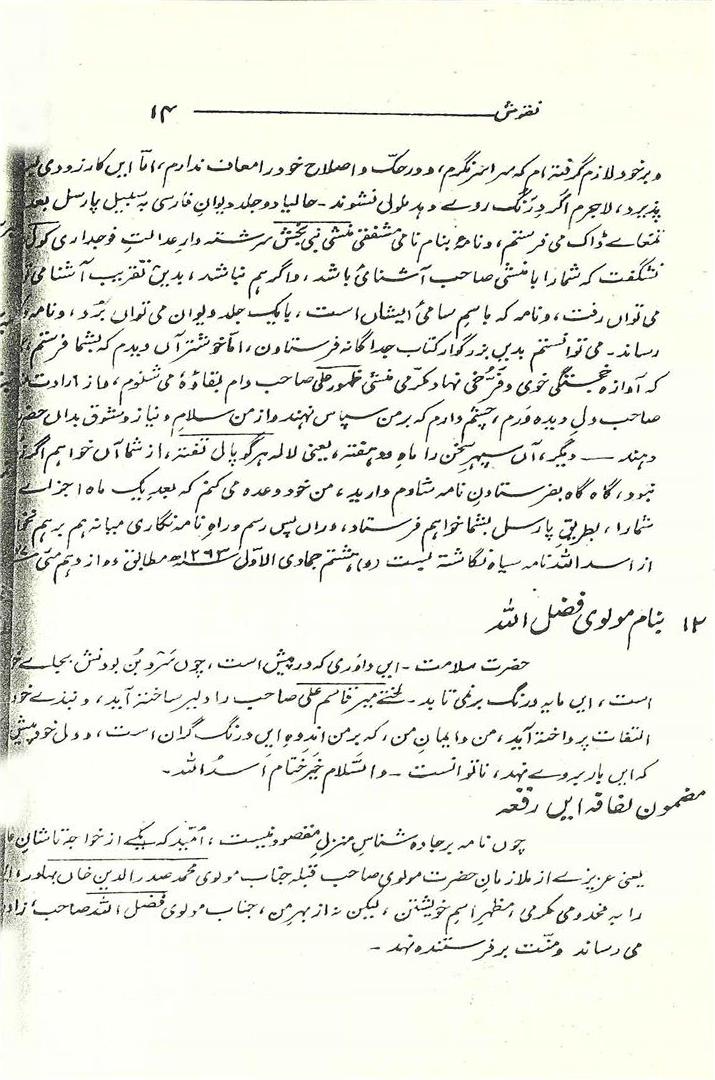 نقوش ۱۴
و برخود لازم گرفته ام که سراسر نگرم، و در حکّ و اصلاح خود را معاف ندارم، امّا ایں کار زودی
پذیرد، لاجرم اگر درنگ روے دہد ملول نشوند - حالیا دو جلد دیوانِ فارسی بہ سبیل پارسل بعد
تمتعاے ڈاک می فرستم، و نامۂ بنام نامی مشفقی منشی نبی بخش سرشتہ دارِ عدالتِ فوجداری
شگفت که شما را با منشی صاحب آشنائی باشد، و اگر ہم نباشد، بدیں تقریب آشنا می
می تواں رفت، و نامہ کہ باسمِ سامیٔ ایشاں است، با یک جلد دیوان می تواں بُرد، و نامہ
رساند - می توانستم بدیں بزرگوار کتاب جداگانہ فرستادن، امّا خوشتر آں دیدم کہ بشما فرستم
که آوازۂ خجستگی خوی و فرّخی نہاد مکرمی منشی ظہور علی صاحب دام بقاؤہٗ می شنوم، و از ارادت
صاحب دلِ دیدہ ورم، چشم دارم کہ بر من سپاس نہند و از من سلام و نیاز و شوق بداں
دہند — دیگر، آں سپہرِ سخن را ماہِ دو ہفتہ، یعنی لالہ ہر گوپال تفتہ، از شما آں خواہم اگر
نبود، گاہ گاہ بفرستادنِ نامہ شادم دارید، من خود وعدہ می کنم که بعدِ یک ماہ اجزاے
شما را، بطریقِ پارسل بشما خواہم فرستاد، وزاں پس رسم و راہِ نامہ نگاری میانہ ہم برہم
از اسد اللہ نامہ سیاہ نگاشتۂ بیست (و) ہشتم جمادی الاوّل ۱۲۶۳ھ مطابق دوازدہم مئی
۱۲ بنام مولوی فضل اللہ
حضرت سلامت - ایں داوری کہ در پیش است، چوں سَرْوبُن بودنش بجاے
است، ایں مایہ درنگ برنمی تابد - لختے میر قاسم علی صاحب را دلیر ساختن آید، و نبذے خود
التفات پرداختہ آید، من و ایمانِ من، کہ بر من اندوہِ ایں درنگ گران است، و دل خود پیش
کہ ایں بار بروے نہد، ناتوانست - والسّلام خیرِ ختام اسدُ اللہ -
مضمون لفافہ ایں رقعہ
چوں نامہ بر جادہ شناسِ منزلِ مقصود نیست، اُمّید کہ یکے از خواجہ تاشانِ
یعنی عزیزے از ملازمانِ حضرت مولوی صاحب قبلہ جناب مولوی محمد صدر الدین خاں بہادر
را بہ مخدومی مکرمی، مظہرِ اسمِ خویشتن، لیکن نہ از بہرِ من، جناب مولوی فضل اللہ صاحب زاد
می رساند و منّت بر فرستندہ نہد -